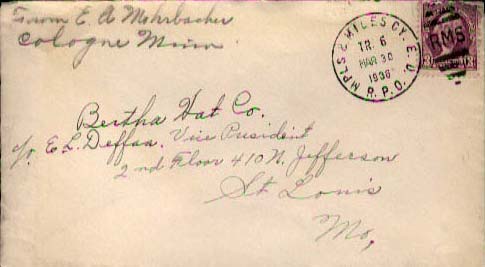 From E. A. Mohrbacher
Cologne Minn
MPLS & MILES CY. E. D.
TR. 6
MAR 30
1936
R. P. O.
RMS
3
Bertha Hat Co.
c/o E. L. Deffaa. Vice President
2nd Floor 410 N. Jefferson
St Louis
Mo,